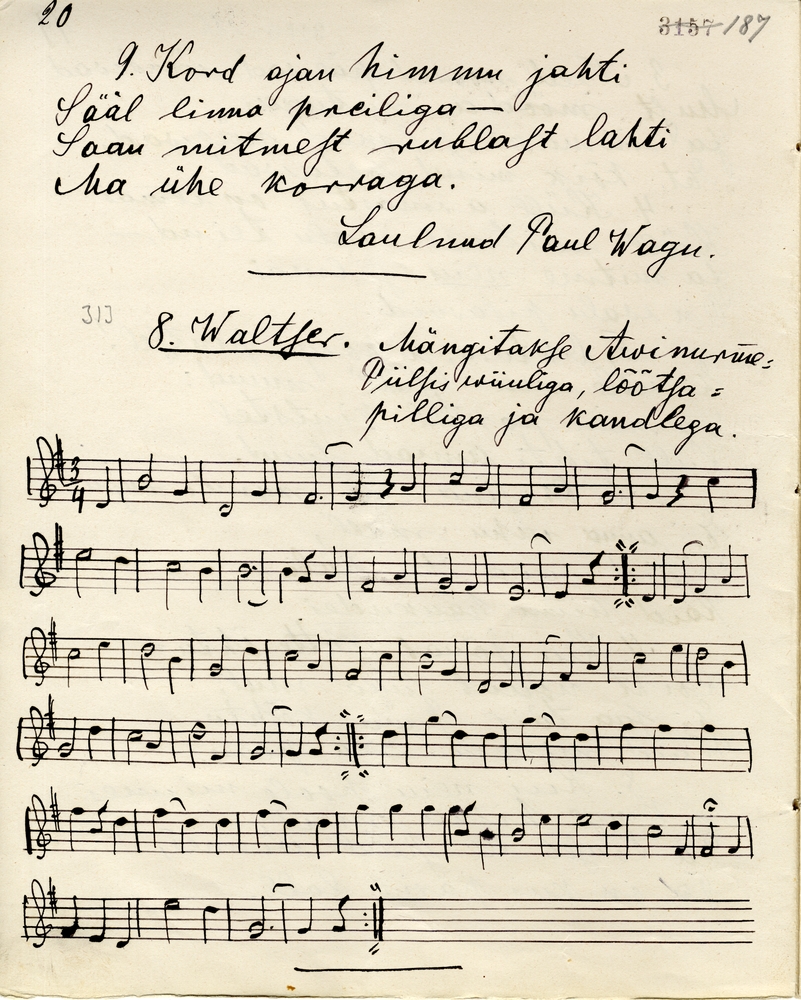 20
3157 187
9. Kord ajan himmu jahti
Sääl linna preiliga —
Saan mitmest rublast lahti
Ma ühe korraga.
Laulnud Paul Wagu.
313
8. Waltser. Mängitakse Awinurme-
Piilsis wiiuliga, lõõtsa-
pilliga ja kandlega.
3
4